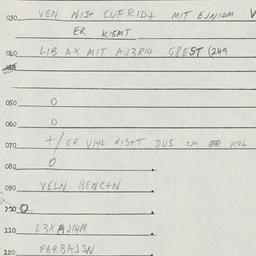 030 VEN NIST CUFRIDT MIT EJNIGM V
ER KISMT
040 LIB AX MIT AJ3RIG G8EST (249
050 O
060 O
070 +/ER VI4L NIST+T DUS CM ER VI4L
080 O
090 VELN BENC+N
100 O
110 L3XAJI4M
120 FARBAJSN